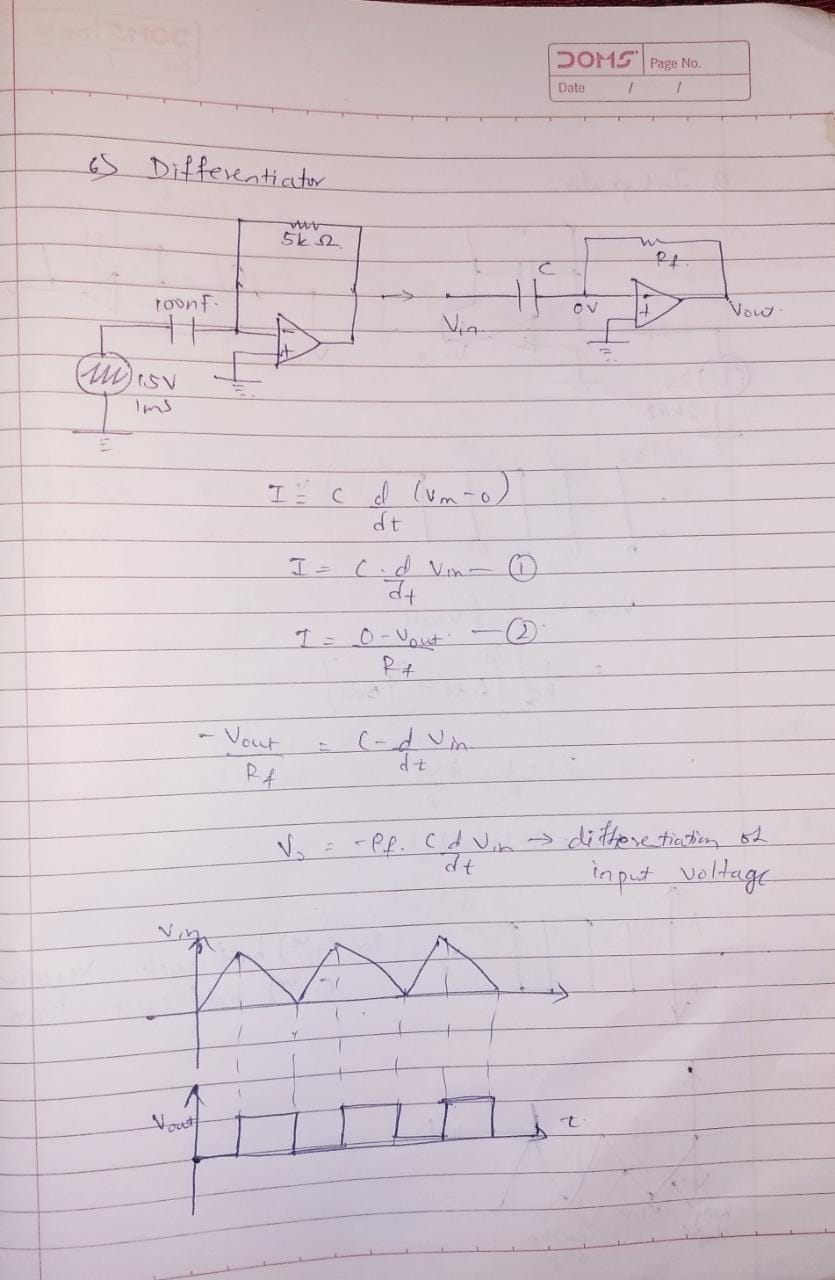 DOMS Page No.
Date / /
6) Differentiator
5k Ω
Rf
C
100nF
0V
Vin
Vout
- +
- +
1.5V
1ms
I = C d/dt (Vin-0)
I = C . d/dt Vin — ①
I = 0 - Vout / Rf — ②
- Vout / Rf = C - d/dt Vin
Vo = -Rf. C d/dt Vin → differentiation of
input voltage
Vin
Vout
t